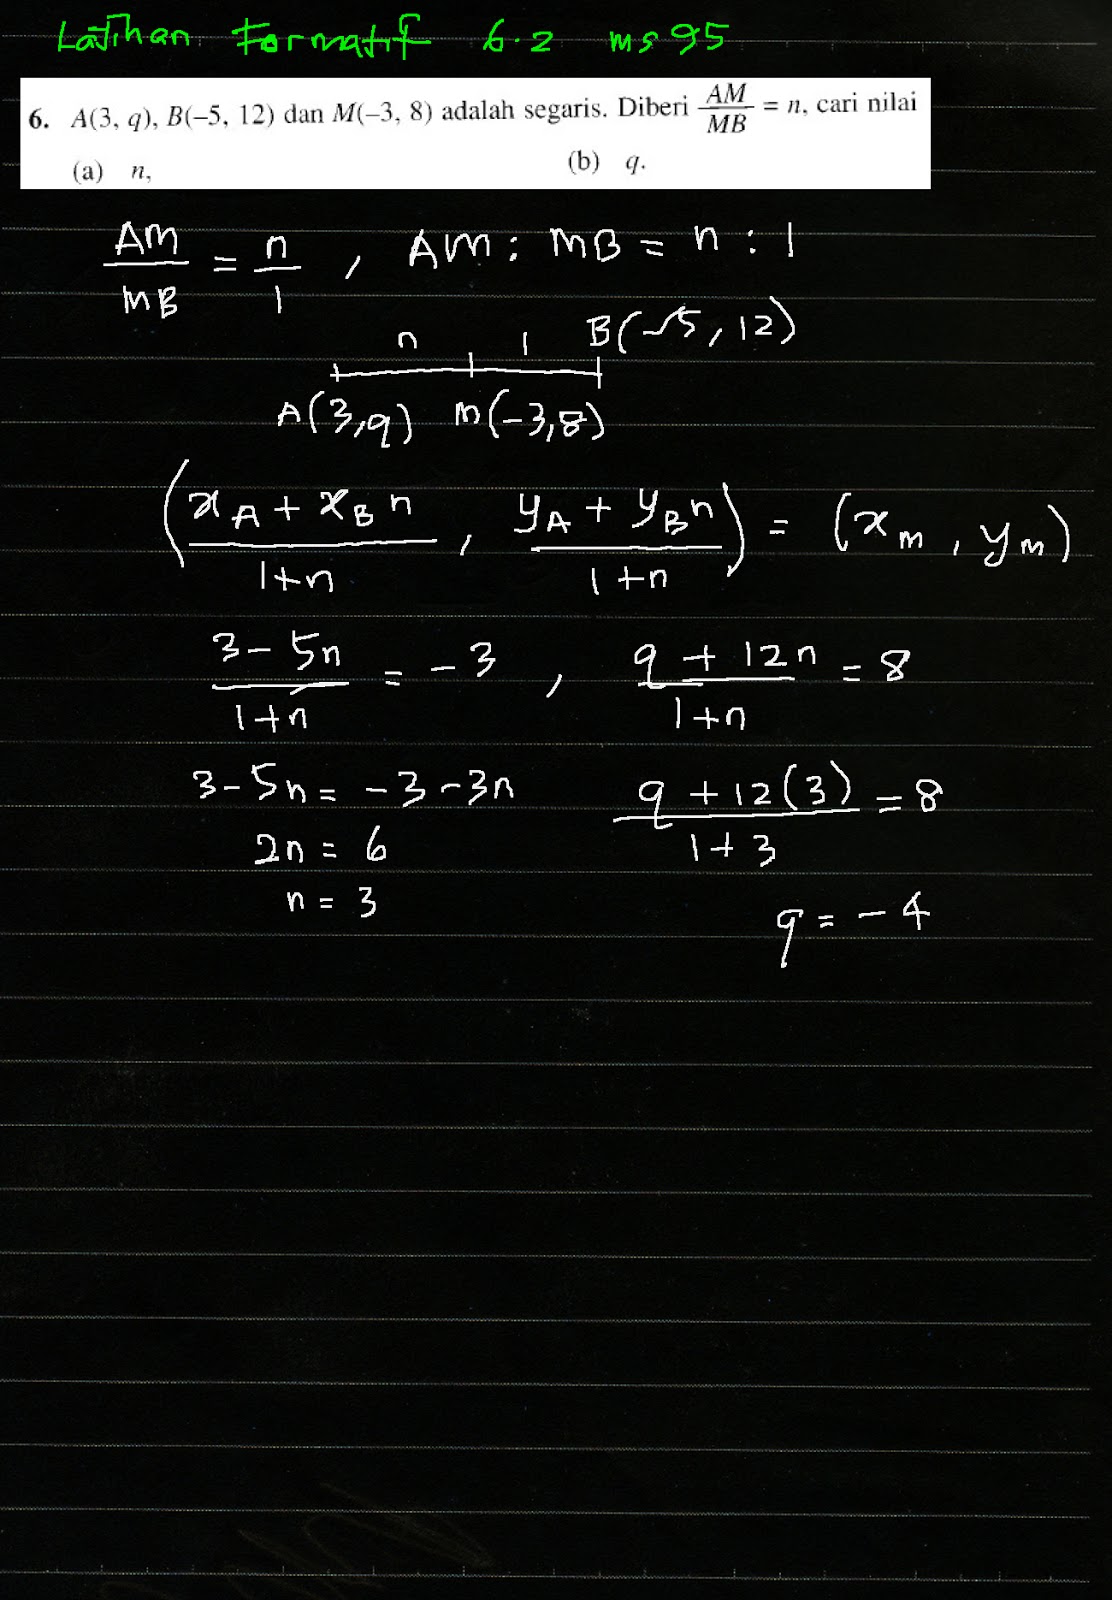 Latihan Formatif 6.2 ms 95
6. A(3, q), B(–5, 12) dan M(–3, 8) adalah segaris. Diberi AM/MB = n, cari nilai
(a) n, (b) q.
AM/MB = n/1 , AM : MB = n : 1
n 1 B(-5, 12)
A(3,q) M(-3,8)
((x_A + x_B n)/(1+n) , (y_A + y_B n)/(1+n)) = (x_m , y_m)
(3 - 5n)/(1+n) = -3 , (q + 12n)/(1+n) = 8
3 - 5n = -3 - 3n (q + 12(3))/(1+3) = 8
2n = 6
n = 3 q = -4